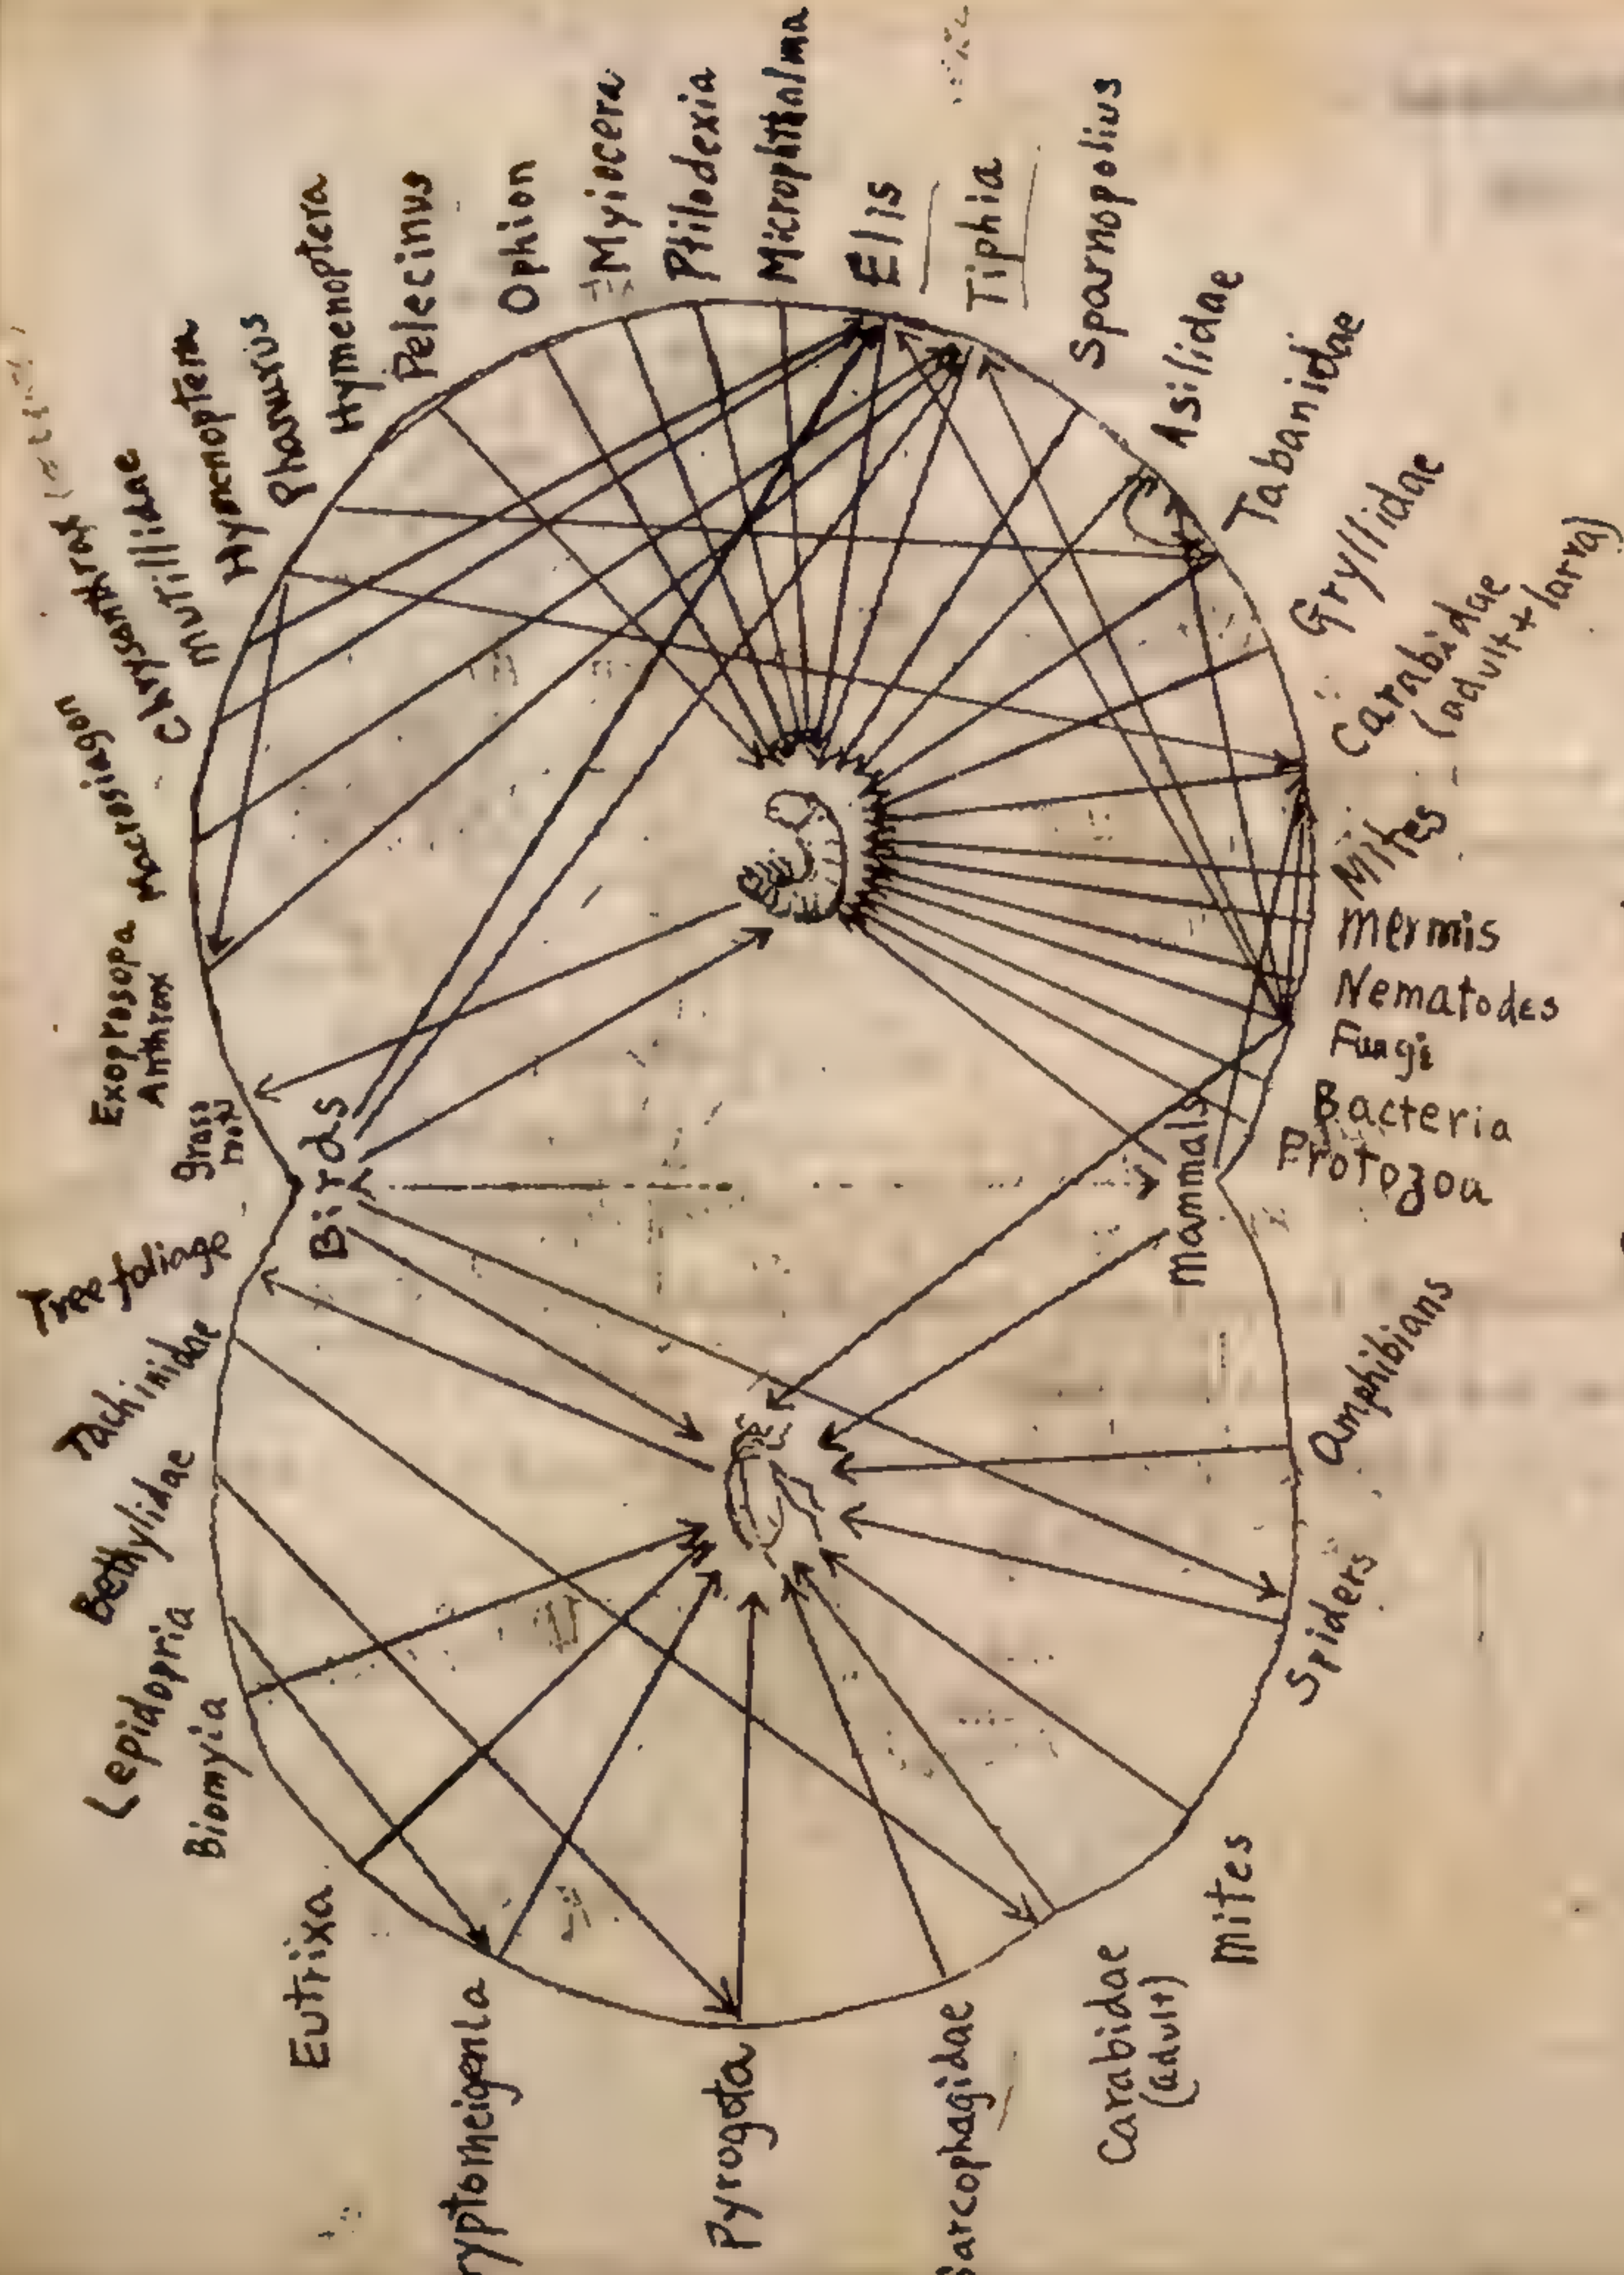 Grass roots
Exoprosopa
Anthrax
Macrosiagon
Chrysanthrax
Mutillidae
Hymenoptera
Phanurus
Hymenoptera
Pelecinus
Ophion
Myiocera
Ptilodexia
Microphthalma
Elis
Tiphia
Sparnopolius
Asilidae
Tabanidae
Gryllidae
Carabidae
(adult + larva)
Mites
Mermis
Nematodes
Fungi
Bacteria
Protozoa
Mammals
Birds
Amphibians
Spiders
Mites
Carabidae
(adult)
Sarcophagidae
Pyrgota
ryptomeigenia
Eutrixa
Biomyia
Lepidopria
Bethylidae
Tachinidae
Tree foliage